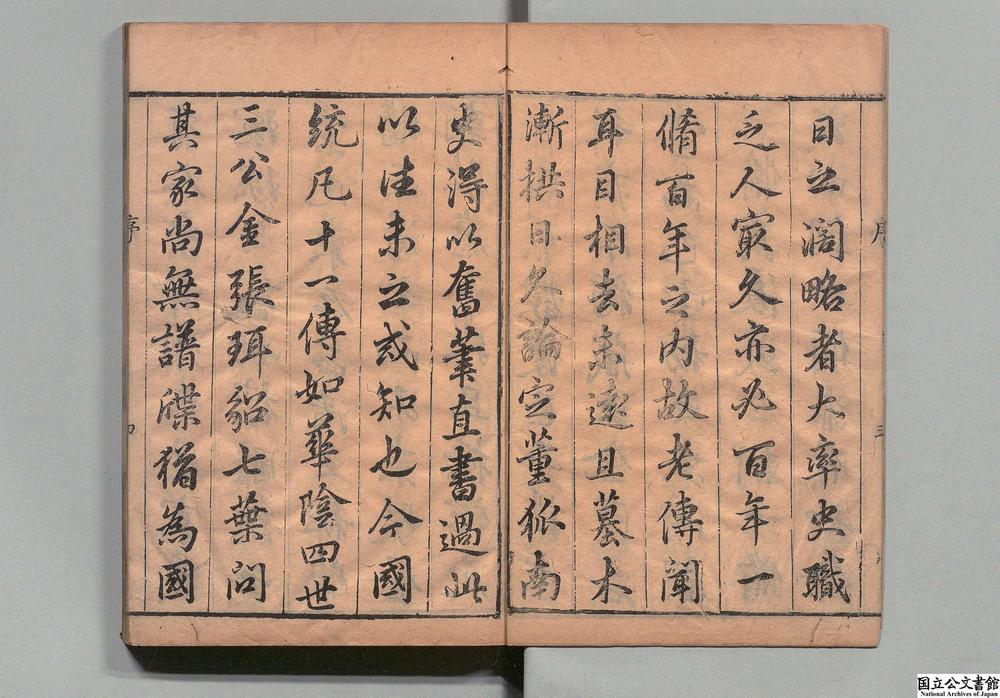 序
三
日之濶略者大率史職
之人㝡久亦必百年一
脩百年之内故老傳聞
耳目相去未遠且墓木
漸拱日久論定董狐南
史得以奮筆直書過此
以往未之或知也今國
統凡十一傳如華陰四世
三公金張珥貂七葉問
其家尚無譜牒猶為國
序
四
国立公文書館
National Archives of Japan